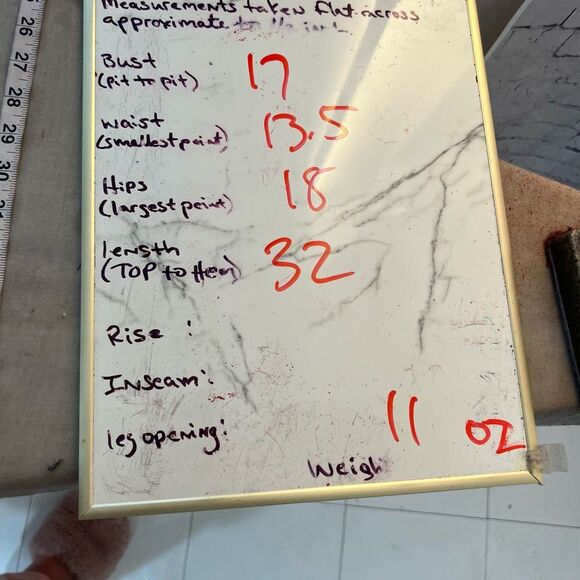 Measurements taken flat across
approximate to
Bust 17
(pit to pit)
waist 13.5
(smallest point)
Hips 18
(largest point)
length 32
(TOP to Hem)
Rise :
Inseam :
leg opening :
11 oz
Weigh
26
27
28
29
30